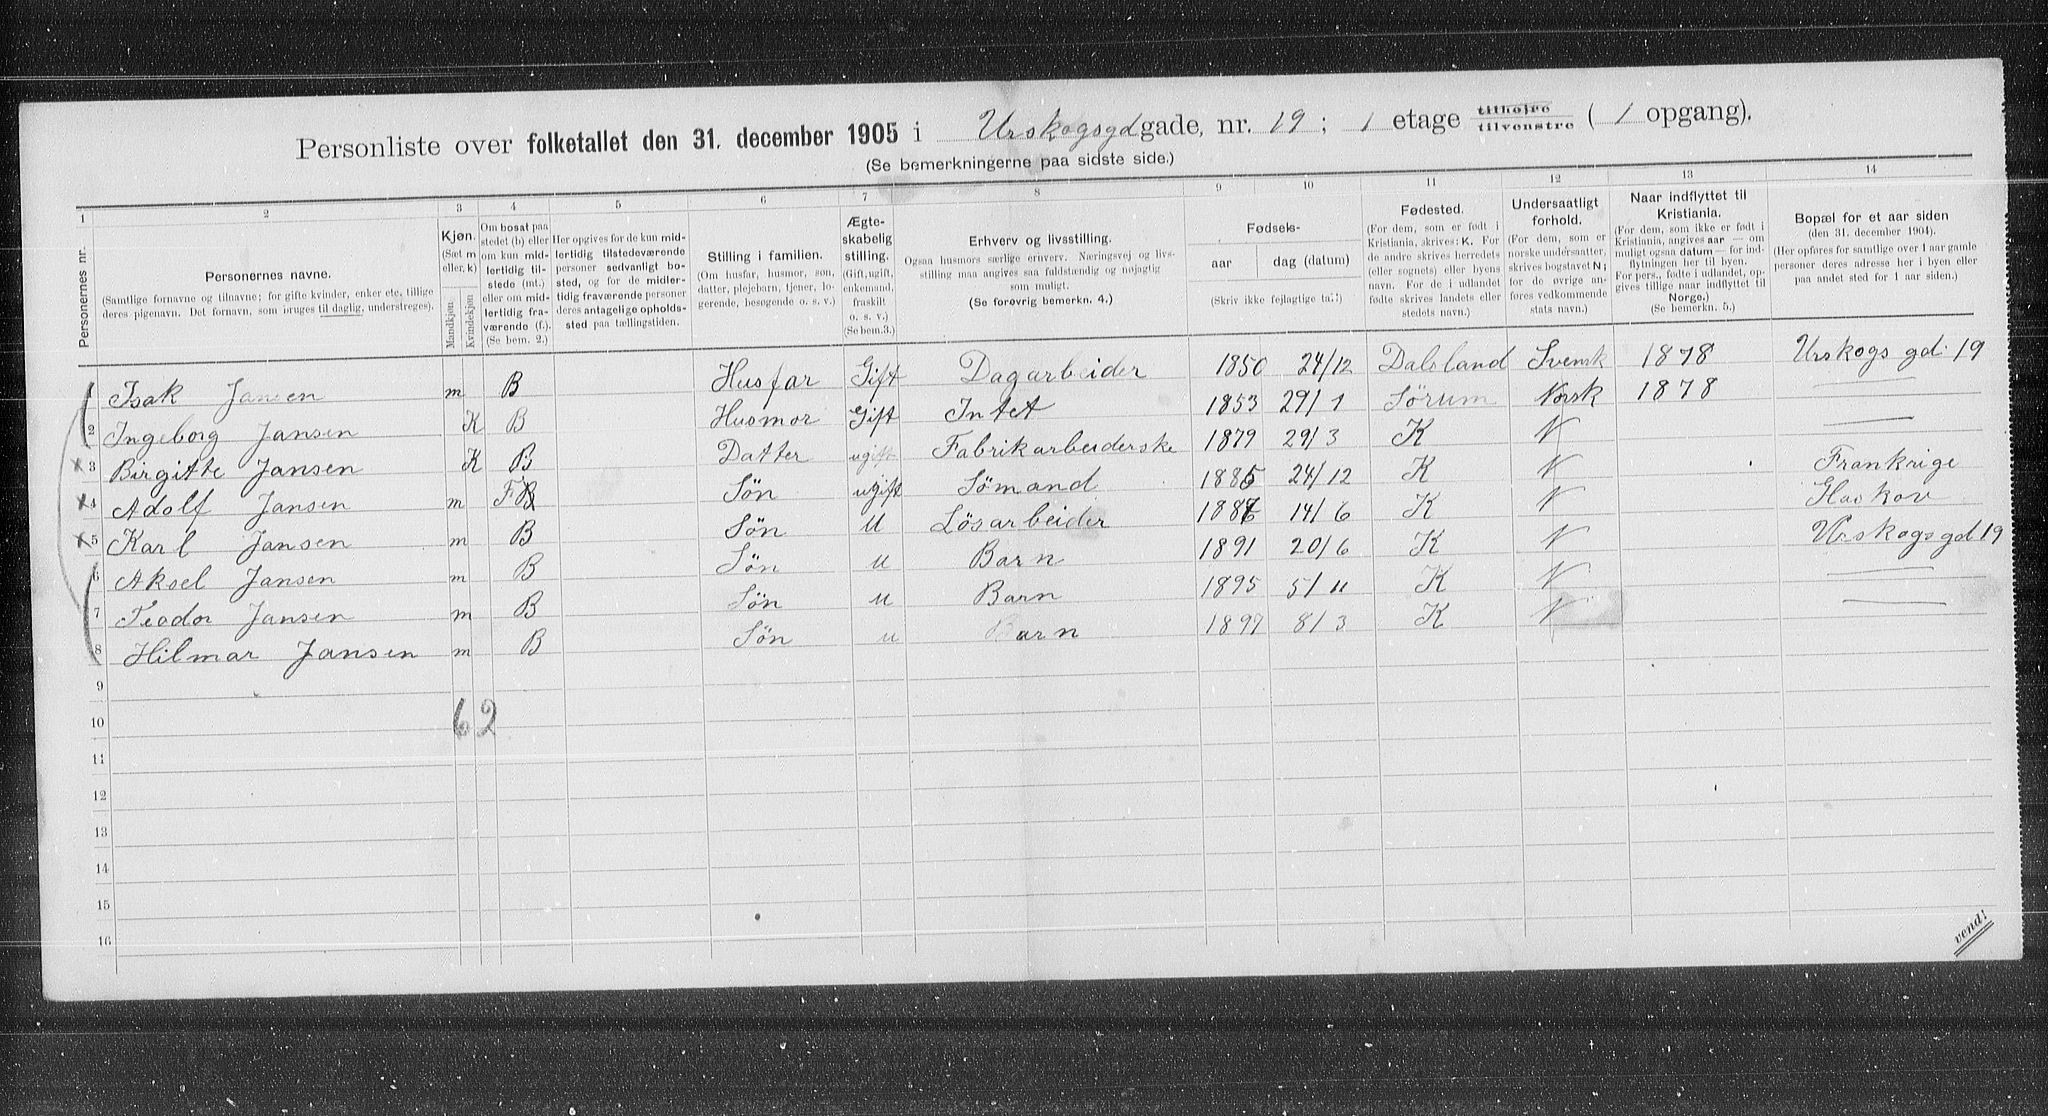 Personliste over folketallet den 31. december 1905 i Urskogsgdgade, nr. 19 ; 1 etage tilhøjre tilvenstre ( 1 opgang).
(Se bemerkningerne paa sidste side.)
1 2 3 4 5 6 7 8 9 10 11 12 13 14
Personernes nr.
Personernes navne.
(Samtlige fornavne og tilnavne; for gifte kvinder, enker etc. tillige
deres pigenavn. Det fornavn, som bruges til daglig, understreges).
Kjøn.
(Sæt m
eller, k)
Mandkjøn.
Kvindekjøn
Om bosat paa
stedet (b) eller
om kun mid-
lertidig til-
stede (mt.)
eller om mid-
lertidig fra-
værende (f.).
(Se bem. 2.)
Her opgives for de kun midlertidig tilstedeværende
personer sedvanlig bo-
sted, og for de midler-
tidig fraværende personer
deres antagelige opholds-
sted paa tællingstiden.
Stilling i familien.
(Om husfar, husmor, søn,
datter, plejebarn, tjener, lo-
gerende, besøgende o. s. v.)
Ægte-
skabelig
stilling.
(Gift, ugift,
enkemand,
fraskilt
o. s. v.)
(Se bem.3.)
Erhverv og livsstilling.
Ogsaa husmors særlige erhverv. Næringsvej og livs-
stilling maa angives saa fuldstændig og nøjagtig
som muligt.
(Se forøvrig bemerkn. 4.)
Fødsels-
aar dag (datum)
(Skriv ikke fejlagtige tal!)
Fødested.
(For dem, som er født i
Kristiania, skrives: K. For
de andre skrives herredets
(eller sognets) eller byens
navn. For de i udlandet
fødte skrives landets eller
stedets navn.)
Undersaatligt
forhold.
(For dem, som er
norske undersaatter,
skrives bogstavet N;
for de øvrige an-
føres vedkommende
stats navn.)
Naar indflyttet til
Kristiania.
(For dem, som ikke er født i
Kristiania, angives aar — om
muligt ogsaa datum — for ind-
flytningen her til byen.
For pers., fødte i udlandet, op-
gives tillige naar indflyttet til
Norge.)
(Se bemerkn. 5.)
Bopæl for et aar siden
(den 31. december 1904).
(Her opføres for samtlige over 1 aar gamle
personer deres adresse her i byen eller
paa andet sted for 1 aar siden.)
1 Isak Jansen m B Husfar Gift Dagarbeider 1850 24/12 Dalsland Svensk 1878 Urskogs gd. 19
2 Ingeborg Jansen K B Husmor Gift Intet 1853 29/1 Sørum Norsk 1878
3 Birgitte Jansen K B Datter ugift Fabrikarbeiderske 1879 29/3 K N
4 Adolf Jansen m F Søn ugift Sømand 1885 24/12 K N Frankrige
5 Karl Jansen m B Søn U Løsarbeider 14/6 K N
6 Aksel Jansen m B Søn u Barn 1891 20/6 K N Urskogsgd 19
7 Teodor Jansen m B Søn u Barn 1895 5/11 K N
8 Hilmar Jansen m B Søn u Barn 1897 8/3 K N
9
10 62
11
12
13
14
15
16
vend!